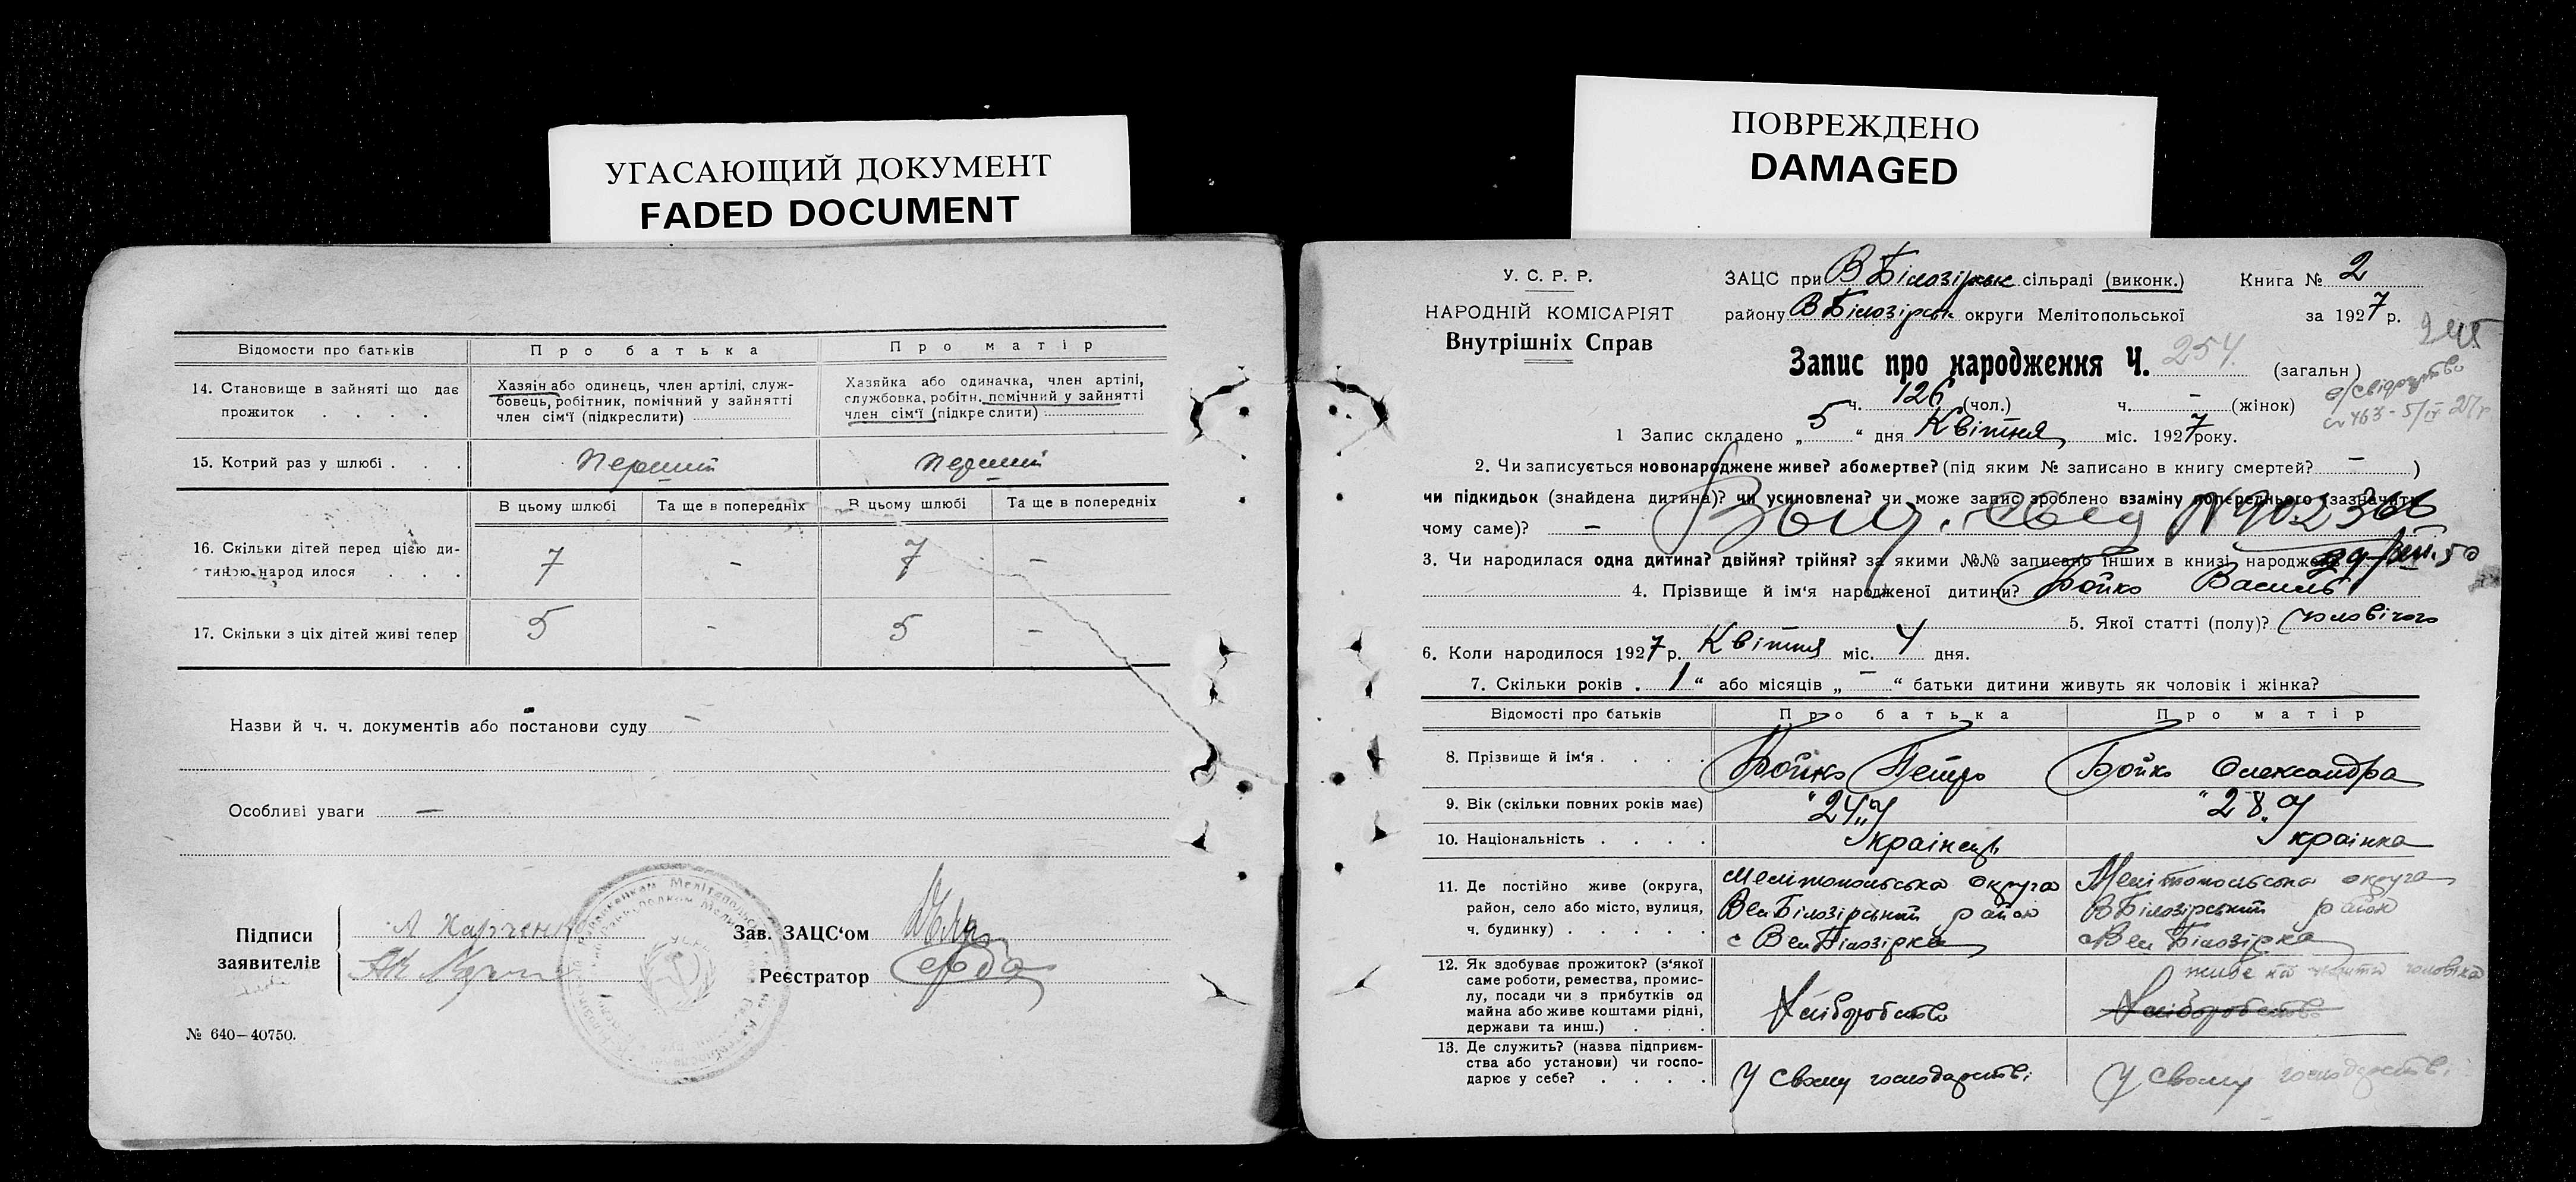 УГАСАЮЩИЙ ДОКУМЕНТ
FADED DOCUMENT
Відомости про батьків
Про батька
Про матір
14. Становище в зайняті що дає прожиток . . . .
Хазяін або одинець, член артілі, служ-
бовець, робітник, помічний у зайнятті
член сім'ї (підкреслити)
Хазяйка або одиначка, член артілі,
службовка, робітн. помічний у зайнятті
член сім'ї (підкреслити)
15. Котрий раз у шлюбі . . .
Перший
Перший
В цьому шлюбі
Та ще в попередніх
В цьому шлюбі
Та ще в попередніх
16. Скільки дітей перед цією ди-
тиною народилося . . .
7 - 7 -
17. Скільки з ціх дітей живі тепер
5 - 5 -
Назви й ч. ч. документів або постанови суду -
Особливі уваги —
Підписи
заявителів
Харченк
Зав. ЗАЦС'ом
Реєстратор
№ 640—40750.
ПОВРЕЖДЕНО
DAMAGED
У. С. Р. Р.
НАРОДНІЙ КОМІСАРІЯТ
Внутрішніх Справ
ЗАЦС при В Білозірськ сільраді (виконк.) Книга № 2
району В Білозірськ округи Мелітопольської за 1927 р.
Запис про народження Ч. 254 (загальн)
ч. 126 (чол.) ч. - (жінок)
1 Запис складено „5“ дня Квітня міс. 1927 року.
2. Чи записується новонароджене живе? або мертве? (під яким № записано в книгу смертей? — )
чи підкидьок (знайдена дитина)? чи усиновлена? чи може запис зроблено взаміну попереднього (зазначити
чому саме)? —
3. Чи народилася одна дитина? двійня? трійня? за якими №№ записано інших в книзі народжень
4. Прізвище й ім'я народженої дитини? Бойко Василь
5. Якої статті (полу)? Чоловічого
6. Коли народилося 1927 р. Квітня міс. 4 дня.
7. Скільки років „1“ або місяців „—“ батьки дитини живуть як чоловік і жінка?
Відомості про батьків
Про батька
Про матір
8. Прізвище й ім'я . . . .
Бойко Петро
Бойко Олександра
9. Вік (скільки повних років має)
"24"
"28"
10. Національність . . . .
Українець
Українка
11. Де постійно живе (округа,
район, село або місто, вулиця,
ч. будинку) . . . . .
Мелітопольська округа
Вел Білозірський район
с Вел Білозірка
Мелітопольська округа
В Білозірський район
с Вел Білозірка
12. Як здобуває прожиток? (з'якої
саме роботи, ремества, промис-
лу, посади чи з прибутків од
майна або живе коштами рідні,
держави та инш.) . . .
Хліборобство
живе на кошти чоловіка
Хліборобство
13. Де служить? (назва підприєм-
ства або установи) чи госпо-
дарює у себе? . . . .
У свому господарстві
У свому господарстві